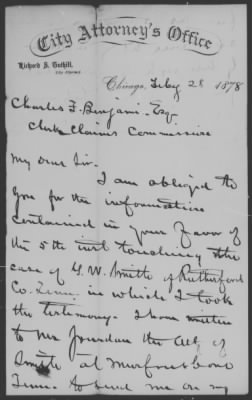 City Attorney's Office
Richard S. Tuthill,
City Attorney
Chicago, Feby 28 1878
Charles F. Benjamin Esqr
Clerk Claims Commission
My dear Sir.
I am obliged to
you for the information
contained in your favor of
the 5th inst touching the
case of G. W. Smith of Rutherford
Co. Tenn. in which I took
the testimony. I have written
to Mr Jourdan the Atty of
Smith at Murfreesboro
Tenn. to send me on my